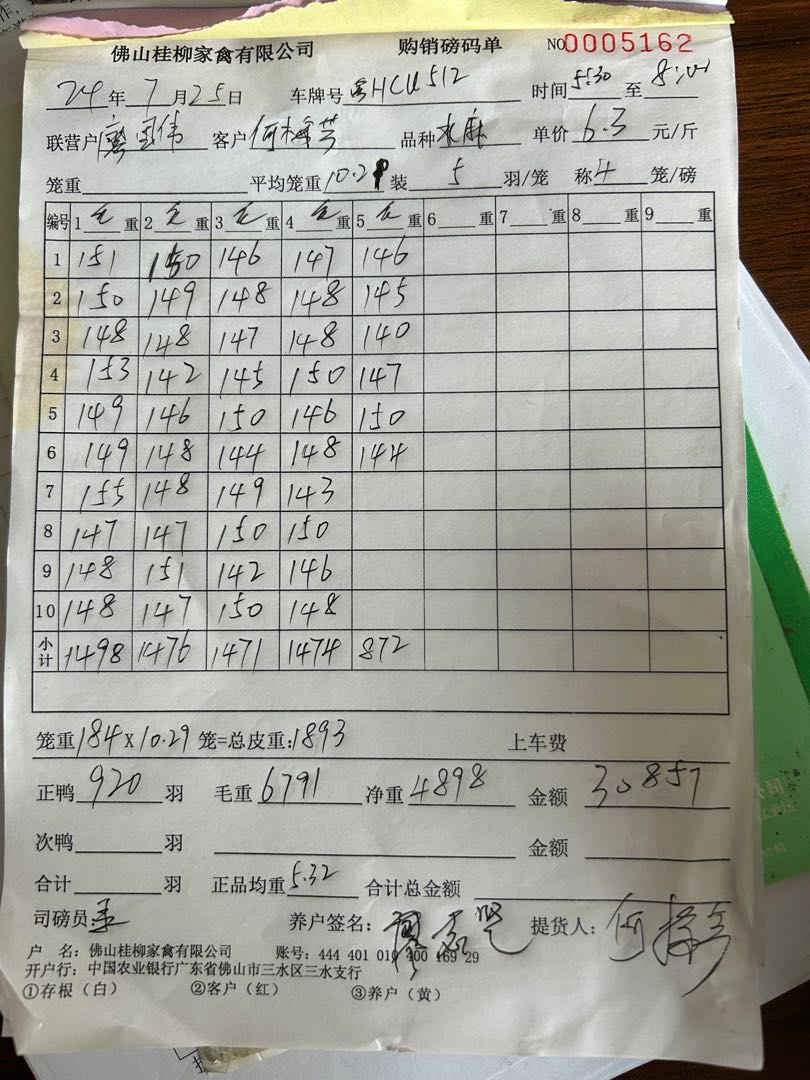 佛山桂柳家禽有限公司 购销磅码单 NO0005162
24年7月25日 车牌号粤HCU512 时间5:30至8:01
联营户廖国伟 客户何梅芳 品种水麻 单价6.3元/斤
笼重 平均笼重10.29装5羽/笼 称4笼/磅
编号 1毛重 2毛重 3毛重 4毛重 5毛重 6重 7重 8重 9重
1 151 150 146 147 146
2 150 149 148 148 145
3 148 148 147 148 140
4 153 142 145 150 147
5 149 146 150 146 150
6 149 148 144 148 144
7 155 148 149 143
8 147 147 150 150
9 148 151 142 146
10 148 147 150 148
小计 1498 1476 1471 1474 872
笼重184X10.29笼=总皮重:1893 上车费
正鸭920羽 毛重6791 净重4898 金额30857
次鸭羽 金额
合计羽 正品均重5.32 合计总金额
司磅员: 养户签名: 提货人:
户 名:佛山桂柳家禽有限公司 账号:444 401 010 400 169 29
开户行:中国农业银行广东省佛山市三水区三水支行
①存根(白) ②客户(红) ③养户(黄)